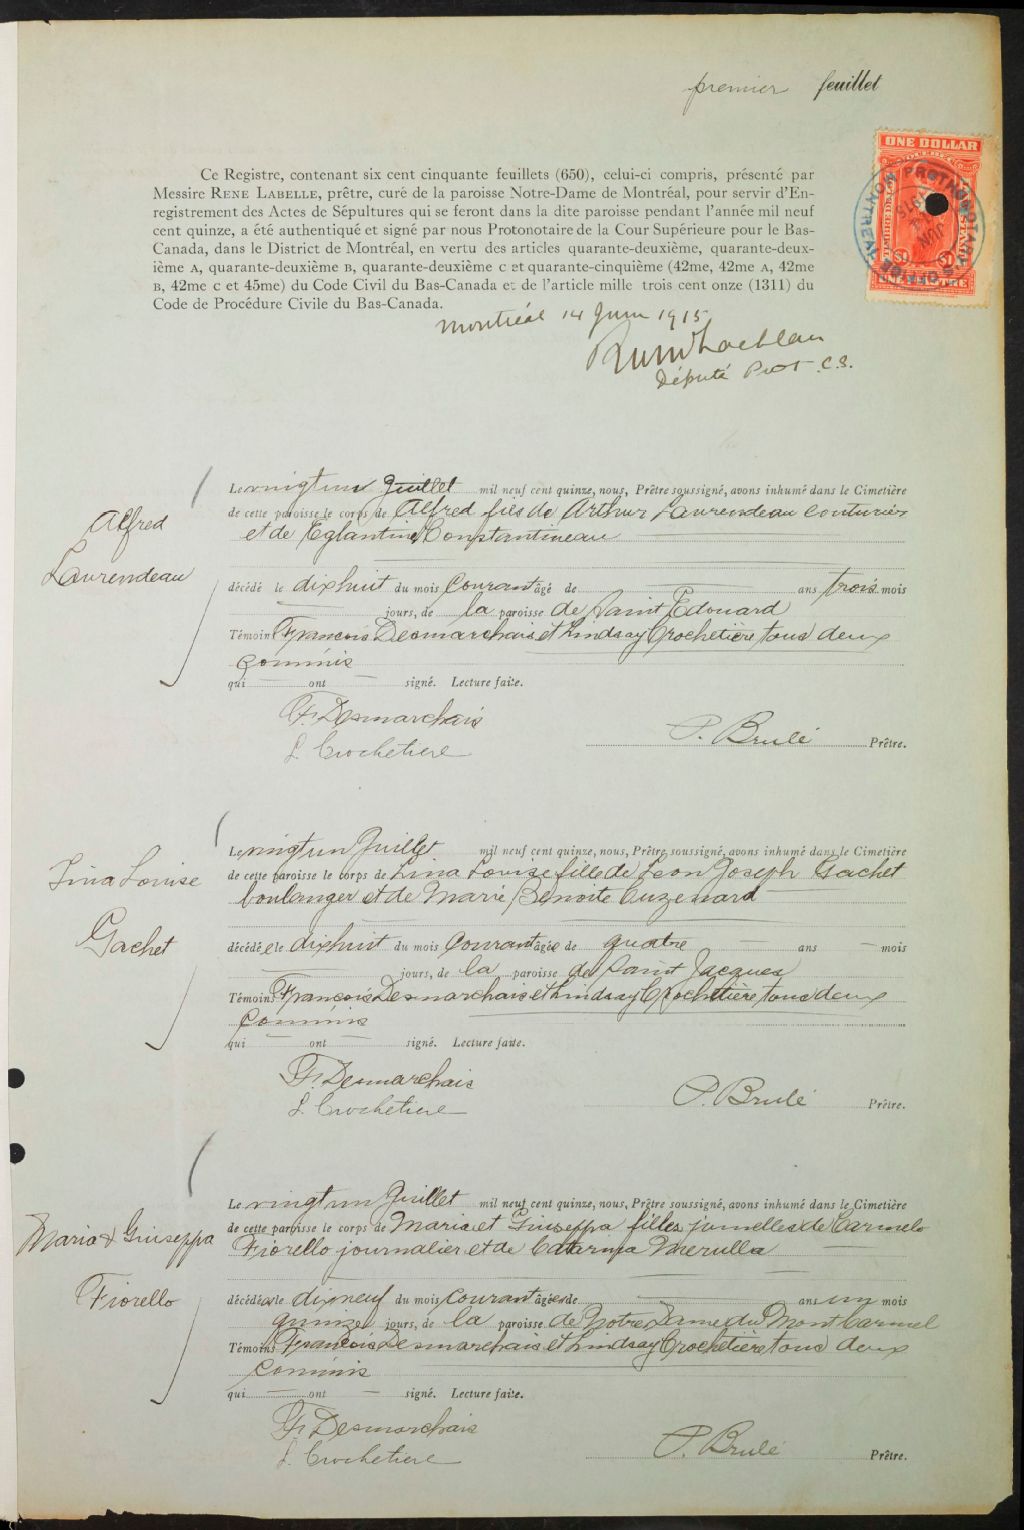 premier feuillet
ONE DOLLAR
Ce Registre, contenant six cent cinquante feuillets (650), celui-ci compris, présenté par
Messire RENE LABELLE, prêtre, curé de la paroisse Notre-Dame de Montréal, pour servir d'En-
registrement des Actes de Sépultures qui se feront dans la dite paroisse pendant l'année mil neuf
cent quinze, a été authentiqué et signé par nous Protonotaire de la Cour Supérieure pour le Bas-
Canada, dans le District de Montréal, en vertu des articles quarante-deuxième, quarante-deux-
ième A, quarante-deuxième B, quarante-deuxième C et quarante-cinquième (42me, 42me A, 42me
B, 42me C et 45me) du Code Civil du Bas-Canada et de l'article mille trois cent onze (1311) du
Code de Procédure Civile du Bas-Canada.
Montréal 14 Juin 1915
Député Prot. C.S.
Le vingt un Juillet mil neuf cent quinze, nous, Prêtre soussigné, avons inhumé dans le Cimetière
Alfred
de cette paroisse le corps de Alfred fils de Arthur Laurendeau couturier
et de Eglantine Constantineau
Laurendeau
décédé le dixhuit du mois courant âgé de ans trois mois
jours, de la paroisse de Saint Edouard
Témoins François Desmarchais et Lindsay Crochetière tous deux
commis
qui ont signé. Lecture faite.
F. Desmarchais
L. Crochetiere
P. Brulé Prêtre.
Le vingt un Juillet mil neuf cent quinze, nous, Prêtre soussigné, avons inhumé dans le Cimetière
Lina Louise
de cette paroisse le corps de Lina Louise fille de Léon Joseph Gachet
boulanger et de Marie Benoite Cuzenard
Gachet
décédée le dixhuit du mois courant âgée de quatre ans mois
jours, de la paroisse de Saint Jacques
Témoins François Desmarchais et Lindsay Crochetière tous deux
commis
qui ont signé. Lecture faite.
F. Desmarchais
L. Crochetiere
P. Brulé Prêtre.
Le vingt un Juillet mil neuf cent quinze, nous, Prêtre soussigné, avons inhumé dans le Cimetière
Maria & Giuseppa
de cette paroisse le corps de Maria et Giuseppa filles jumelles de Carmelo
Fiorello journalier et de Catarina Merulla
Fiorello
décédées le dixneuf du mois courant âgées de ans un mois
quinze jours, de la paroisse de Notre Dame du Mont Carmel
Témoins François Desmarchais et Lindsay Crochetière tous deux
commis
qui ont signé. Lecture faite.
F. Desmarchais
L. Crochetiere
P. Brulé Prêtre.